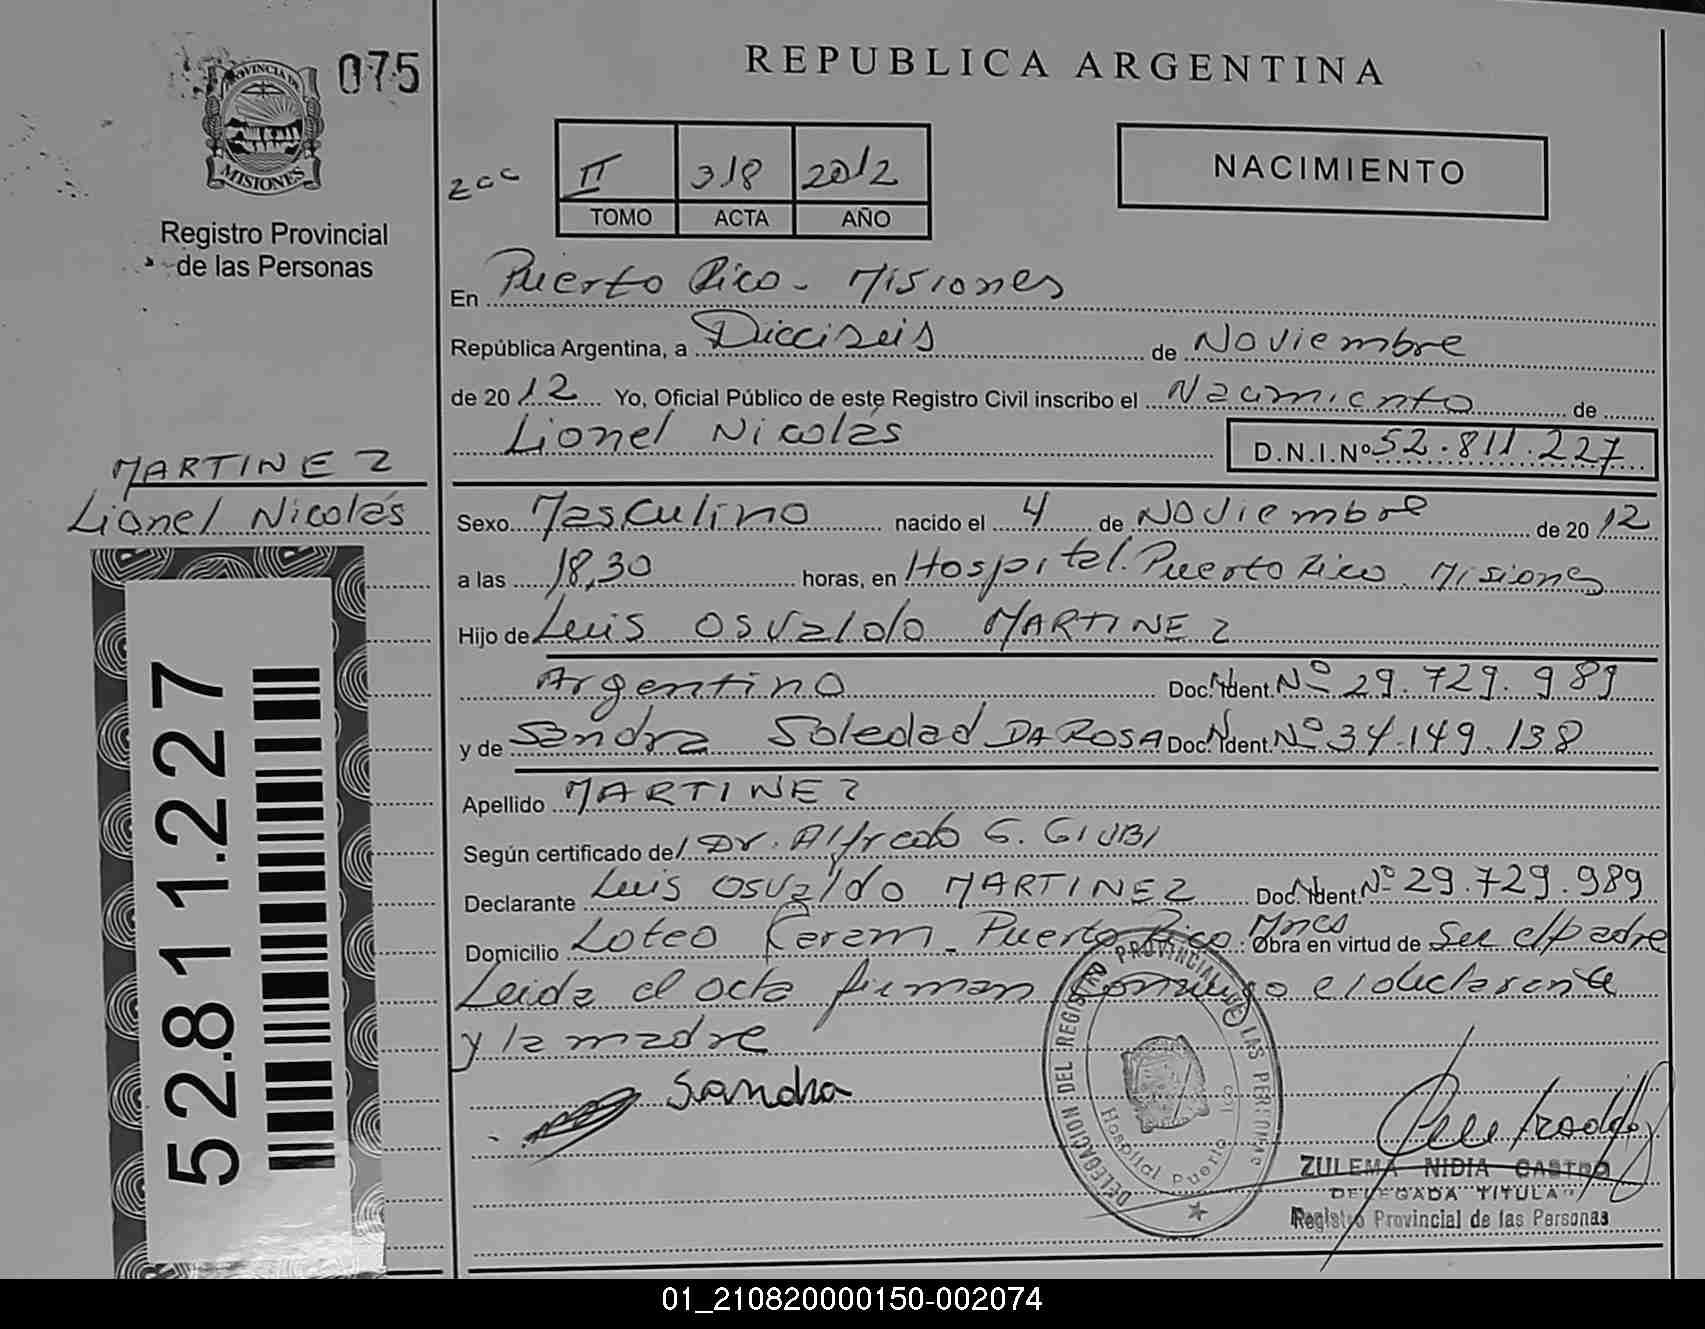 075
PROVINCIA DE
MISIONES
Registro Provincial
de las Personas
REPUBLICA ARGENTINA
II 318 2012
TOMO ACTA AÑO
NACIMIENTO
En Puerto Rico - Misiones
República Argentina, a Dieciseis de Noviembre
de 2012 Yo, Oficial Público de este Registro Civil inscribo el Nacimiento de
Lionel Nicolás
D.N.I.Nº 52.811.227
MARTINEZ
Lionel Nicolás
Sexo Masculino nacido el 4 de Noviembre de 2012
a las 18,30 horas, en Hospital Puerto Rico. Misiones
Hijo de Luis Osvaldo MARTINEZ
Argentino Doc. Ident. Nº 29.729.989
y de Sandra Soledad DA ROSA Doc. Ident. Nº 34.149.138
Apellido MARTINEZ
Según certificado del Dr. Alfredo G. GIUBI
Declarante Luis Osvaldo MARTINEZ Doc. Ident. Nº 29.729.989
Domicilio Loteo Karam - Puerto Rico Mnes Obra en virtud de Ser el padre
Leida el acta firman conmigo el declarante
y la madre
Sandra
52.811.227
DELEGACION DEL REGISTRO PROVINCIAL DE LAS PERSONAS
Hospital Puerto
ZULEMA NIDIA CASTRO
DELEGADA TITULAR
Registro Provincial de las Personas
01_210820000150-002074